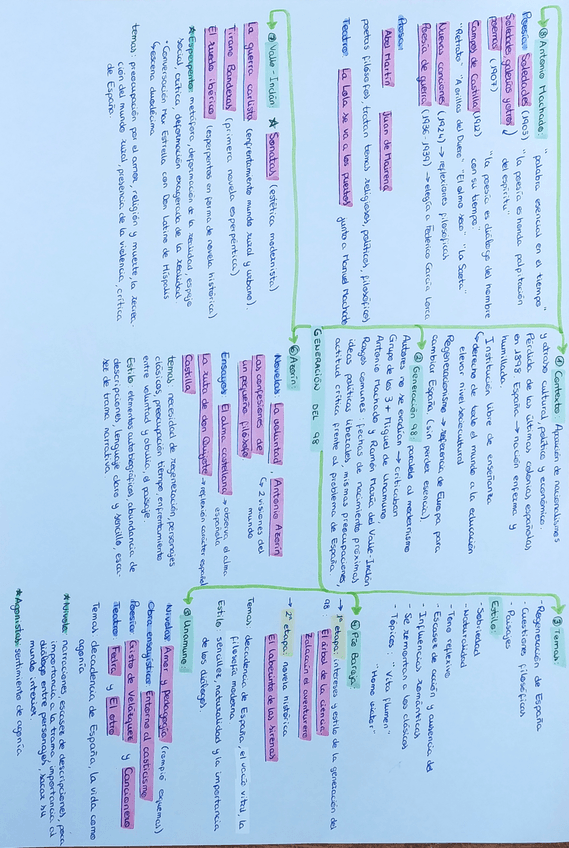 GENERACIÓN DEL 98
① Contexto: Aparición de nacionalismos
y atraso cultural, político y económico.
Pérdida de las últimas colonias españolas
en 1898 España → nación enferma y
humillada.
Institución libre de enseñanza
Derecho de todo el mundo a la educación
elevar nivel sociocultural
Regeneracionismo → referencia de Europa para
cambiar España (sin perder esencia)
② Generación 98: paralela al modernismo
Autores no se evadían → criticaban
Grupo de los 3 + Miguel de Unamuno,
Antonio Machado y Ramón María del Valle-Inclán
Rasgos comunes: fechas de nacimiento próximas,
ideas políticas liberales, mismas preocupaciones,
actitud crítica frente al problema de España
③ Temas:
- Regeneración de España
- Cuestiones filosóficas
- Paisajes
Estilo:
- Sobriedad
- Naturalidad
- Tono reflexivo
- Escasez de acción y ausencia de
- Influencias románticas
- Se remontan a los clásicos
- Tópicos: "Vita flumen"
"Homo viator"
④ Pío Baroja
→ 1ª etapa: intereses y estilo de la generación del
98
El árbol de la ciencia
Zalacaín el aventurero
→ 2ª etapa: novela histórica
El laberinto de las sirenas
Temas: decadencia de España, el vacío vital, la
filosofía moderna
Estilo: sencillez, naturalidad y la importancia
de los diálogos.
⑤ Unamuno:
Nivolas: Amor y pedagogía (rompió esquemas)
Obra ensayística: En torno al casticismo
Poesía: Cristo de Velázquez y Cancionero
Teatro: Fedra y El otro
Temas: decadencia de España, la vida como
agonía
★ Nivola: narraciones escasez de descripciones, poca
importancia a la trama, importancia al
diálogo entre personajes, sacar su
mundo interior
★ Agonista: sentimiento de agonía
⑥ Azorín
Novelas: La voluntad Antonio Azorín
Las confesiones de
un pequeño filósofo
↳ 2 visiones del
mundo
Ensayos: El alma castellana → observa el alma
española
La ruta de don Quijote → reflexión carácter español
Castilla
temas: necesidad de regeneración, personajes
clásicos, preocupación tiempo, enfrentamiento
entre voluntad y abulia, el paisaje
Estilo: elementos autobiográficos, abundancia de
descripciones, lenguaje claro y sencillo, esca-
sez de trama narrativa
⑦ Valle-Inclán ★ Sonatas (estética modernista)
La guerra carlista (enfrentamiento mundo rural y urbano).
Tirano Banderas (primera novela esperpéntica)
El ruedo ibérico (esperpentos en forma de novela histórica)
★ Esperpento: metáfora, deformación de la realidad, espejo
social crítica, deformación exagerada de la sociedad
- Conversación Max Estrella con Don Latino de Hispalis
↳ escena duodécima
temas: preocupación por el amor, religión y muerte, la recrea-
ción del mundo rural, presencia de la violencia, crítica
de España.
⑧ Antonio Machado: "palabra esencial en el tiempo"
Poesía: Soledades (1903) "la poesía es honda palpitación
del espíritu"
Soledades, galerías y otros
poemas (1907) "la poesía es diálogo del hombre
con su tiempo"
Campos de Castilla (1912)
"Retrato" "A orillas del Duero" "El olmo seco" "La Saeta"
Nuevas canciones (1924) → reflexiones filosóficas
Poesía de guerra (1936-1939) → elegía a Federico García Lorca
Prosa:
Abel Martín Juan de Mairena
poetas filósofos, tratan temas religiosos, políticos, filosóficos
Teatro: La Lola se va a los puertos junto a Manuel Machado